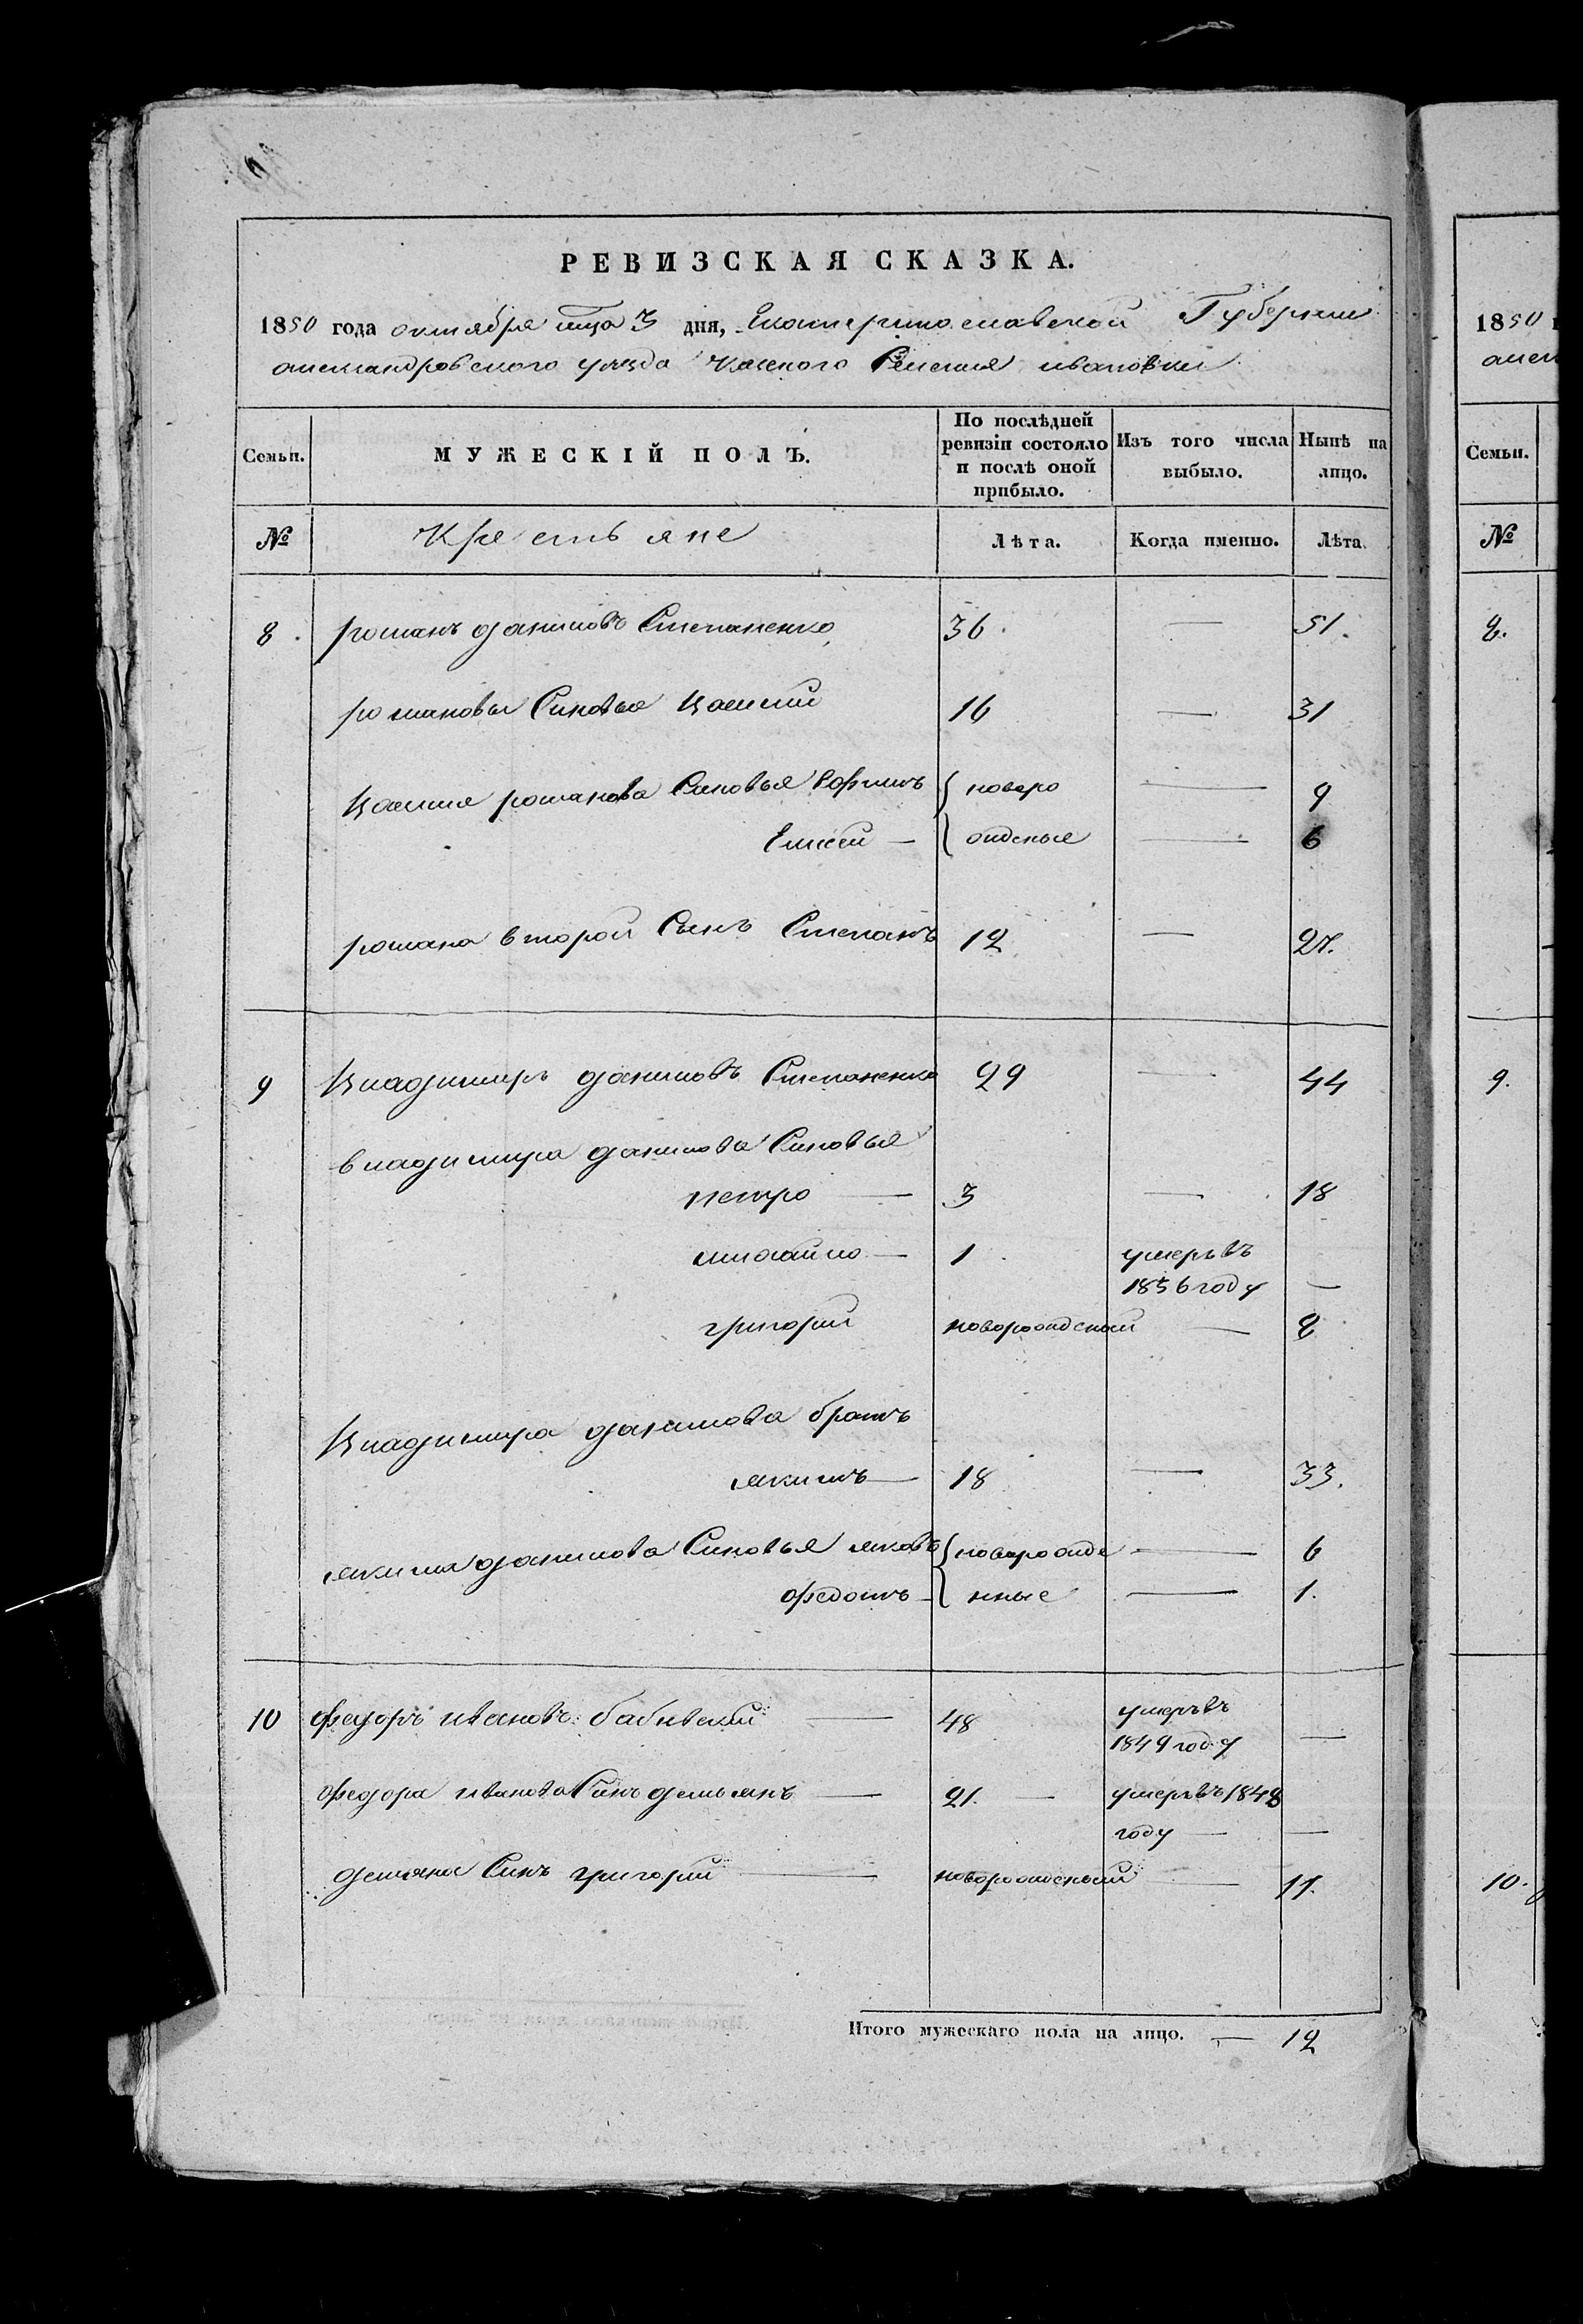 РЕВИЗСКАЯ СКАЗКА.
1850 года октября мца 3 дня, Екатеринославской Губернии
александровского уезда Казеного Селения ивановки
Семьи. МУЖЕСКІЙ ПОЛЪ. По послѣдней ревизіи состояло и послѣ оной прибыло. Изъ того числа выбыло. Нынѣ на лицо.
№ Крестьяне Лѣта. Когда именно. Лѣта.
8. романъ даниловъ Степаненко 36. — 51.
романовы Синовья Василий 16 — 31
Василия романова Синовья { новоро — 9
Елисей — { жденые — 6
романа второй Сынъ Степанъ 12 — 27.
9 Владимиръ даниловъ Степаненко 29 — 44
владимира данилова Синовья
петро — 3 — 18
михайло — 1. умеръ въ
1836 году —
григорий новорожденый — 8
Владимира данилова братъ
якимъ — 18 — 33.
якима данилова Синовья яковъ { новорожде — 6
федотъ — { нные — 1.
10 федоръ ивановъ бабневский — 48 умеръ въ
1849 году —
федора иванова Синъ демьянъ — 21. — умеръ въ 1848
году — —
демяна Синъ григорий — новорожденый — 11.
Итого мужескаго пола на лицо. — 12
1850
алек
Семьи.
№
8.
9.
10.